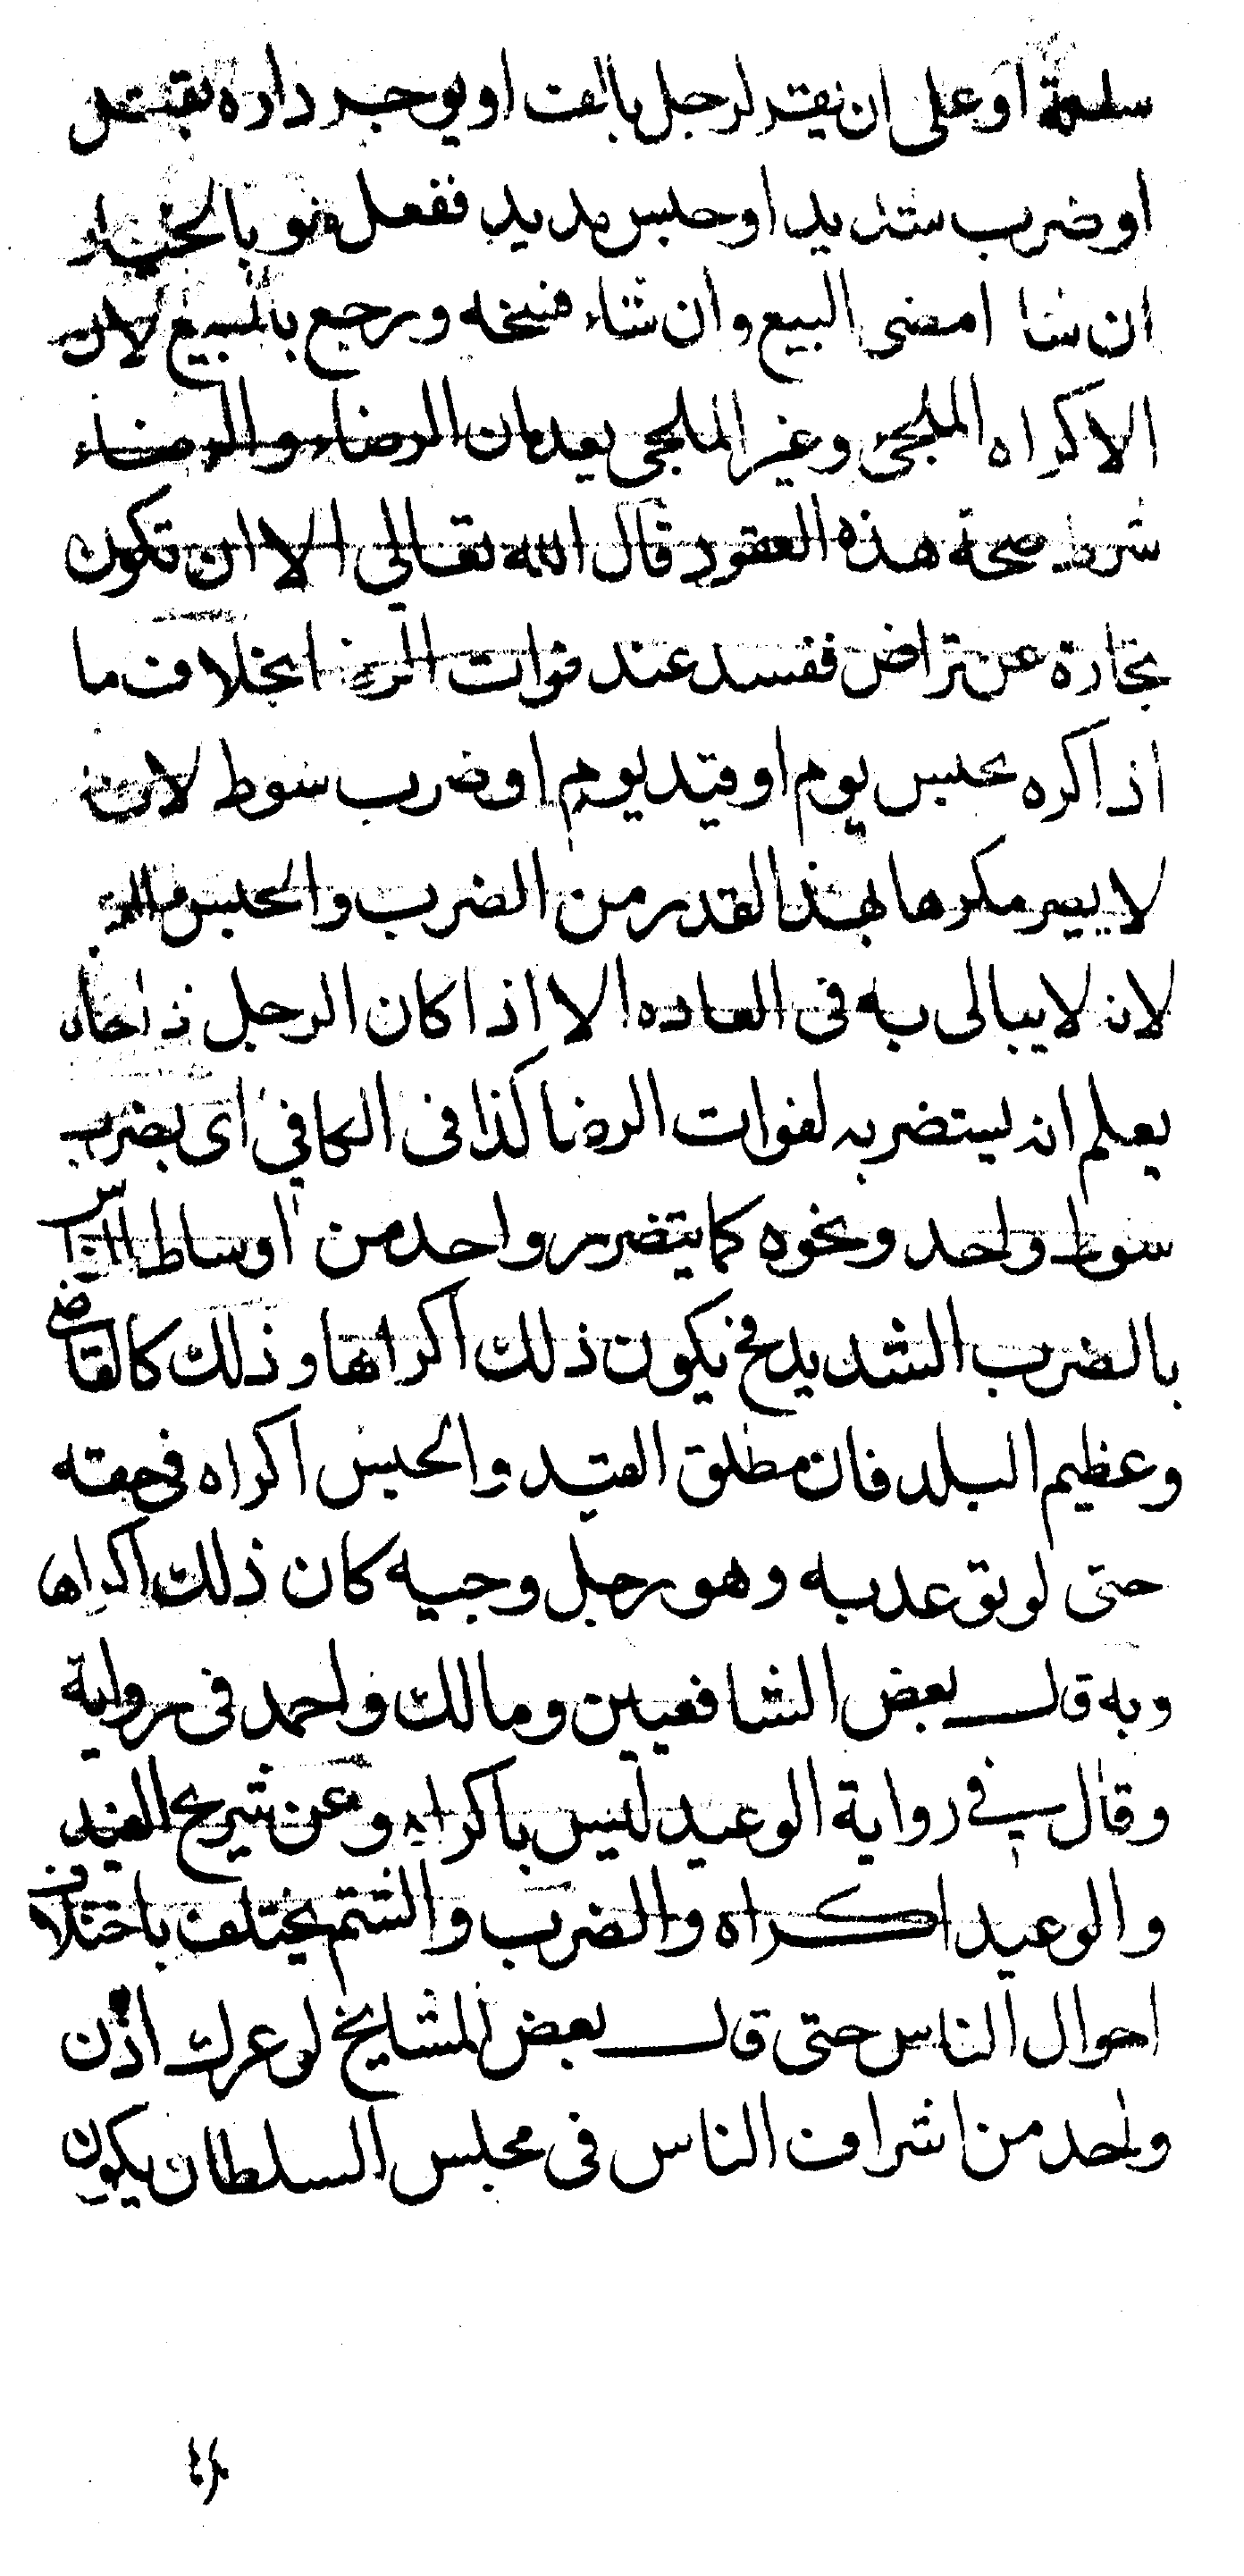 سلعة او على ان يقر لرجل بالف او يوجر داره بقتل
او ضرب شديد او حبس مديد ففعل فهو بالخيار
ان شا امضى البيع وان شاء فسخه ورجع بالمبيع لان
الاكراه الملجئ وغير الملجى يعدمان الرضاء والرضاء
شرط صحة هذه العقود قال الله تعالى الا ان تكون
تجارة عن تراض ففسد عند فوات الرضا بخلاف ما
اذا كره بحبس يوم او قيد يوم او ضرب سوط لانه
لا يصير مكرها بهذا القدر من الضرب والحبس
لانه لا يبالى به فى العاده الا اذا كان الرجل ذا جاه
يعلم انه يستضر به لفوات الرضا كذا فى الكافي اى بضرب
سوط واحد ونحوه كما يتضرر واحد من اوساط الناس
بالضرب الشديد فح يكون ذلك اكراها وذلك كالقاضى
وعظيم البلد فان مطلق القيد والحبس اكراه فى حقه
حتى لو توعد به وهو رجل وجيه كان ذلك اكراها
وبه قال بعض الشافعيين ومالك واحمد فى رواية
وقال في رواية الوعيد ليس باكراه وعن شريح القيد
والوعيد اكراه والضرب والشتم يختلف باختلاف
احوال الناس حتى قال بعض المشايخ لو عرك اذن
واحد من اشراف الناس فى مجلس السلطان يكون